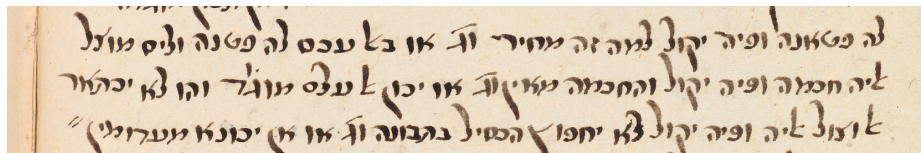 לה פטאנה ופיה יקול למה זה מחיר וג׳ או בא עכס לה פטנה וליס מוצ׳ל
איה חכמה ופיה יקול והחכמה מאין וג׳ או יכון א עכס מוג׳ד והו לא יכתאר
א וצול איה ופיה יקול לא יחפוץ הכסיל בתבונה וג׳ או אן יכונא מעדומין